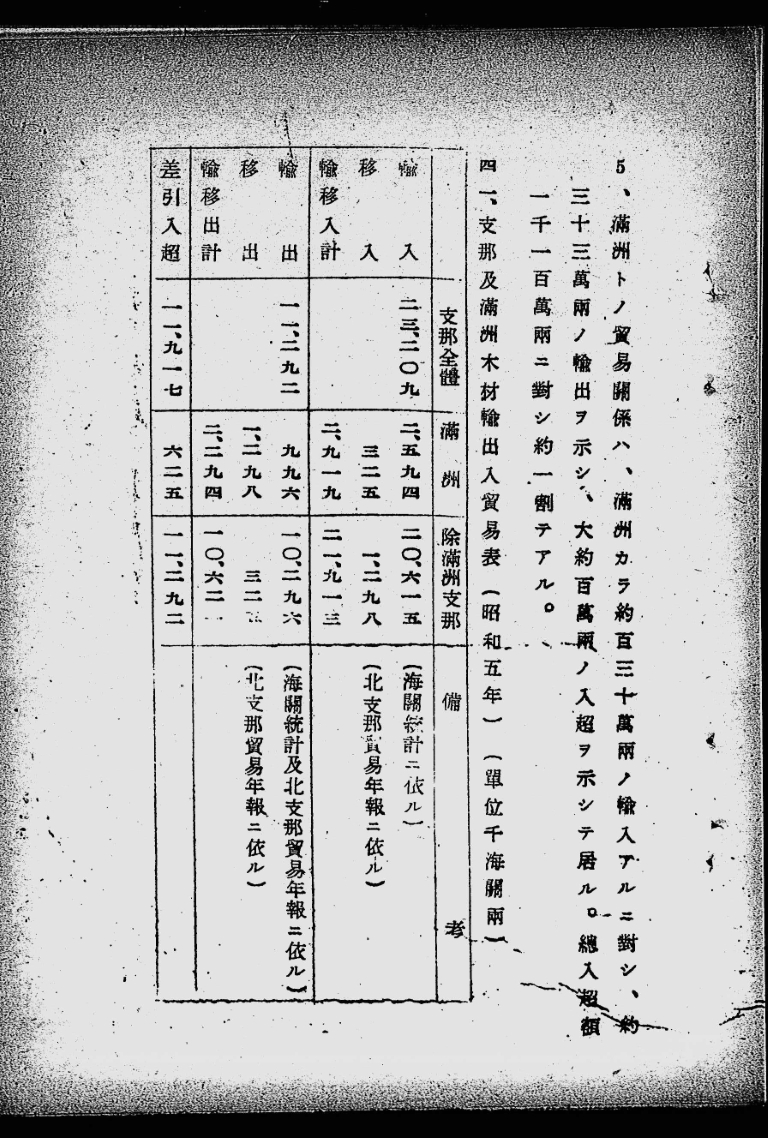 5、滿洲トノ貿易關係ハ、滿洲カラ約百三十萬兩ノ輸入アルニ對シ、約
三十三萬兩ノ輸出ヲ示シ、大約百萬兩ノ入超ヲ示シテ居ル。總入超額
一千一百萬兩ニ對シ約一割テアル。
四一、支那及滿洲木材輸出入貿易表(昭和五年)(單位千海關兩)
支那全體 滿洲 除滿洲支那 備考
輸入 二三、二〇九 二、五九四 二〇、六一五 (海關統計ニ依ル)
移入 三二五 一、二九八 (北支那貿易年報ニ依ル)
輸移入計 二、九一九 二一、九一三
輸出 一一、二九二 九九六 一〇、二九六 (海關統計及北支那貿易年報ニ依ル)
移出 一、二九八 三二五 (北支那貿易年報ニ依ル)
輸移出計 二、二九四 一〇、六二一
差引入超 一一、九一七 六二五 一一、二九二